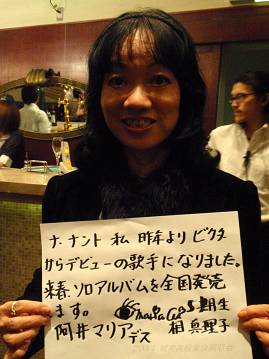 ナ・ナント 私 昨年より ビクタ
からデビューの歌手になりました。
来春、ソロアルバムを全国発売
ます。 期生
阿井マリアデス 相真理子